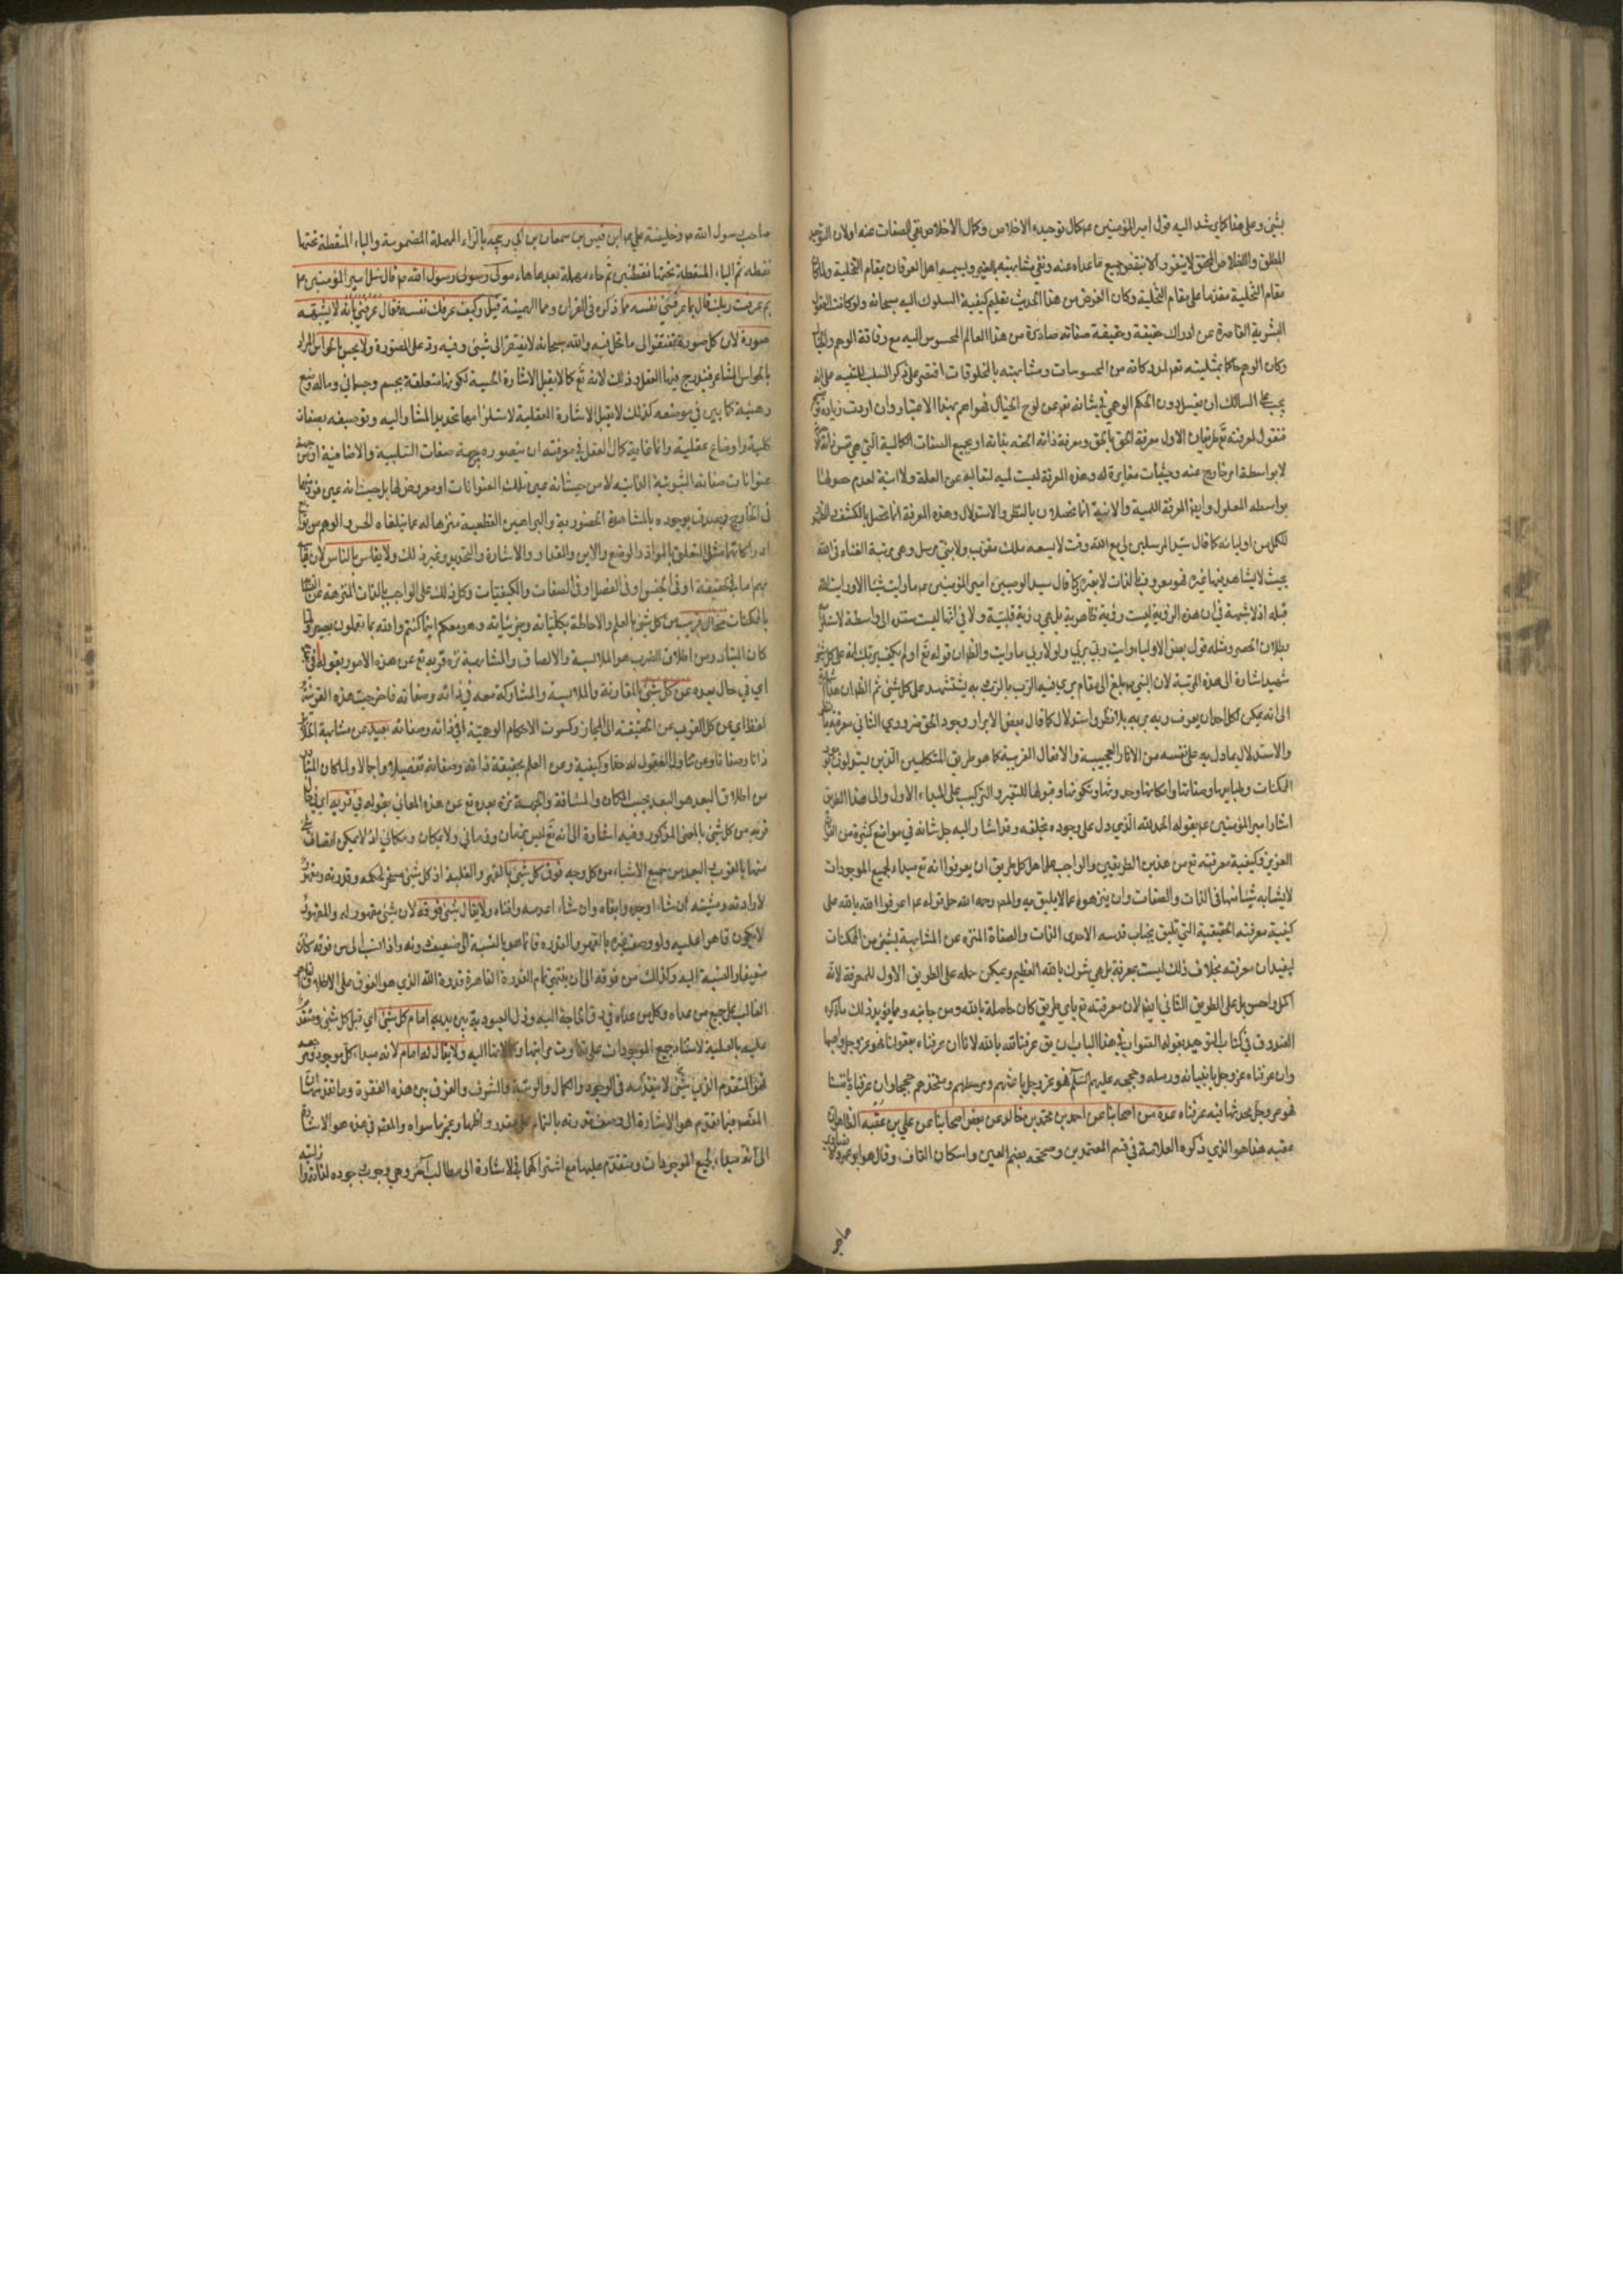 بشئ وعلى هذا كما يرشد اليه قول امير المؤمنين ع كمال توحيده الاخلاص وكمال الاخلاص نفي الصفات عنه اولان التوحيد
المطلق والاخلاص المحقق لا يتقرر الا بنفض جميع ما عداه عنه ونفي مشابهته بالغير ويسميه اهل العرفان مقام التخلية ولما كان
مقام التخلية مقدما على مقام التحلية وكان الغرض من هذا الحديث تعليم كيفية السلوك اليه سبحانه ولو كانت العقول
البشرية القاصرة عن ادراك حقيقته وحقيقة صفاته صادرة من هذا العالم المحسوس اليه مع رفاقة الوهم والخيال
وكان الوهم حاكما بمثليته تعالى لمدركاته من المحسومات ومشابهته بالمخلوقات اقتصر على ذكر السلب للتنبيه على انه
يجب على السالك ان يغسل درن الحكم الوهمي في شانه تعالى عن لوح الخيال فهو اهم بهذا الاعتبار وان اردت زيادة توضيح
فنقول لمعرفته تع طريقان الاول معرفة الحق بالحق ومعرفة ذاته الحقه بذاته او بجميع الصفات الكمالية التي هي نفس ذاته
لا بواسطة امر خارج عنه وحيثيات مغايرة له وهذه المعرفة ليست لمية لتعاليه عن العلة ولا انية لعدم حصولها
بواسطة المعلول وايضا المعرفة اللمية والانية انما تحصلان بالنظر والاستدلال وهذه المعرفة انما تحصل بالكشف والظهور
للكل من اوليائه كما قال سيد المرسلين لي مع الله وقت لا يسعه ملك مقرب ولا نبي مرسل وهي مرتبة الفناء في الله
بحيث لا يشاهد فيها غيره فهو معروف بالذات لا بغيره كما قال سيد الوصيين امير المؤمنين ع ما رايت شيئا الا ورايت الله
قبله اذ لا شبهة في ان هذه الرؤية ليست رؤية ظاهرية بل هي رؤية قلبية ولا في انها ليست مستندة الى واسطة لاستلزام
بطلان الحصر ومثله قول بعض الاولياء رايت ربي بربي ولولا ربي ما رايت والظهران قوله تع اولم يكف بربك انه على كل شئ
شهيد اشارة الى هذه المرتبة لان النبي ص بلغ الى مقام يرى فيه الرب بالرب به يستشهد على كل شئ ثم الظهران هذا
الى انه يمكن لكل احد ان يعرف ربه بربه بلا نظر واستدلال كما قال بعض الابرار وجود الحق ضروري الثاني معرفته بالنظر
والاستدلال بما دل به على نفسه من الاثار العجيبة والافعال الغريبة كما هو طريق المتكلمين الذين يستدلون بوجود
الممكنات وطبايعها وصفاتها وامكانها وحدوثها وتكونها وقبولها للتغير والتركيب على المبدء الاول والى هذا الطريق
اشار امير المؤمنين ع بقوله الحمد لله الذي دل على وجوده بخلقه وقد اشار اليه جل شانه في مواضع كثيرة من القرآن
العزيز وكيفية معرفته تع من هذين الطريقين والواجب على اهل كل طريق ان يعرفوا انه تع مبداء لجميع الموجودات
لا يشابه شيئا منها في الذات والصفات وان ينزهوه عما لا يليق به والمص رحمه الله حمل قوله ع اعرفوا الله بالله على
كيفية معرفته الحقيقية التي تليق بجناب قدسه الاحدى الذات والصفاة المنزه عن المشابهة بشئ من الممكنات
ليفيد ان معرفته بخلاف ذلك ليست بمعرفة بل هي شرك بالله العظيم ويمكن حمله على الطريق الاول للمعرفة لانه
اكمل واحسن بل على الطريق الثاني ايضا لان معرفته تع باي طريق كان حاصلة بالله ومن جانبه ومما يؤيد ذلك ما ذكره
الصدوق في كتاب التوحيد بقوله الصواب في هذا الباب ان يق عرفنا الله بالله لانا ان عرفناه بعقولنا فهو عز وجل واهبها
وان عرفناه عز وجل بانبيائه ورسله وحججه عليهم السلام فهو عز وجل باعثهم ومرسلهم ومتخذهم حججا وان عرفناه بانفسنا
فهو عز وجل محدثها فبه عرفناه عدة من اصحابنا عن احمد بن محمد بن خالد عن بعض اصحابنا عن علي بن عقبه الظاهران
عقبه هذا هو الذي ذكره العلامة في قسم المعتمدين وصححه بضم العين واسكان القاف وقال هو ابو عمرو
صاحب
صاحب رسول الله ص وخليفة علي ع ابن قيس بن سمعان بن ابي ربيحه بالراء المهملة المضمومة والباء المنقطة تحتها
نقطه ثم الياء المنقطة تحتها نقطتين ثم حاء مهملة بعدها هاء مولى رسول الله ص قال سئل امير المؤمنين ع
بم عرفت ربك قال بما عرفني نفسه مما ذكره في القرآن ومما الهمنيه قيل وكيف عرفك نفسه فقال عرفني بانه لا يشبهه
صورة لان كل صورة تفتقر الى ما تحل فيه والله سبحانه لا يفتقر الى شئ وفيه رد على المصورة ولا يحس بالحواس المراد
بالحواس المشاعر فيندرج فيها العقل وذلك لانه تع كما لا يقبل الاشارة الحسية لكونها متعلقة بجسم وجسماني وماله وضع
وهيئة كما بين في موضعه كذلك لا يقبل الاشارة العقلية لاستلزامها تحديد المشار اليه وتوصيفه بصفات
كلية واوضاع عقلية وانما غاية كمال العقل في معرفته ان يتصوره بجهة صفات السلبية والاضافية او من جهة
عنوانات صفاته الثبوتية الذاتية لا من حيث انه عين تلك العنوانات او معروض لها بل حيث انه عين فرد منها
في الخارج فيصدق بوجوده بالمشاهدة الحضورية والبراهين القطعية منزها له عما يتلقاه الحس والوهم من توابع
ادراكاتها مثل التعلق بالمواد والوضع والاين والمقدار والاشارة والتحديد وغير ذلك ولا يقاس بالناس لان قياسه
بهم اما في الحقيقة او في الجنس او في الفصل او في الصفات والكيفيات وكل ذلك على الواجب بالذات المنزهة عن
بالممكنات محال قريب من كل شئ بالعلم والاحاطة بكلياته وجزئياته وهو معكم اينما كنتم والله بما تعملون بصير ولما
كان المتبادر من اطلاق القرب هو الملابسة والالصاق والمشابهة نزه قربه تع عن هذه الامور بقوله في بعده
اي في حال بعده عن كل شئ بالمقارنة والملابسة والمشاركة معه في ذاته وصفاته فاخرجت هذه القرينة
لفظ اي عن كل القرب عن الحقيقة الى المجاز وكسرت الاحكام الوهمية في ذاته وصفاته بعيد عن مشابهة الخلق
ذاتا وصفاتا وعن تناول العقول له حقا وكيفية ومن العلم بحقيقة ذاته وصفاته تفصيلا واجمالا ولما كان المتبادر
من اطلاق البعد هو البعد بحسب المكان والمسافة والجهة نزه بعده تع عن هذه المعاني بقوله في قربه اي في حال
قربه من كل شئ بالمعنى المذكور وفيه اشارة الى انه تع ليس بزمان وزماني ولا بمكان ومكاني اذ لا يمكن اتصاف شئ
منها بالقرب والبعد من جميع الاشياء من كل وجه فوق كل شئ بالقهر والغلبة اذ كل شئ مسخر لحكمه وقدرته ومقهور
لارادته ومشيته ان شاء اوجده وابقاه وان شاء اعدمه وافناه ولا يقال شئ فوقه لان شئ مقهور له والمقهور
لا يكون قاهرا عليه ولو وصف غيره بالقهر والقدرة فانما هو بالنسبة الى ضعيف دونه واذا نسب الى من فوقه كان
ضعيفا بالنسبة اليه وكذلك من فوقه الى ان ينتهي تمام القدرة القاهرة قدرة الله الذي هو الفوق على الاطلاق
الغالب على جميع من عداه وكل من عداه في رق الحاجة اليه وذل العبودية بين يديه امام كل شئ اي قبل كل شئ ومتقدم
عليه بالعلية لاستناد جميع الموجودات على تفاوت مراتبها وكمالاتها اليه ولا يقال له امام لانه مبداء كل موجود
فهو المتقدم الذي شئ لا يتقدمه في الوجود والكمال والرتبة والشرف والفرق بين هذه الفقرة وما تقدمها ان
المقصود فيما تقدم هو الاشارة الى وصف قدرته بالتمام على مقدور وانظها وعجز ما سواه والمقصود في هذه هو الاشارة
الى انه مبداء لجميع الموجودات ومتقدم عليها مع اشتراكهما في الاشارة الى مطالب اخر وهي وجوب وجوده لذاته